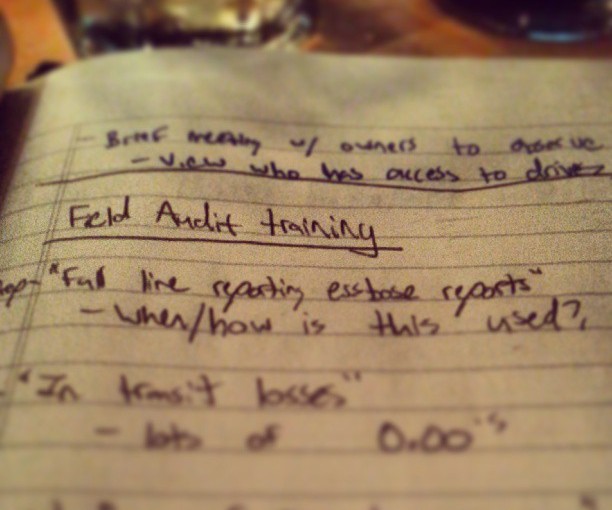 - Brief meeting w/ owners to observe
- View who has access to drives
Field Audit training
"Full line reporting essbase reports"
- when/how is this used?
- "In transit losses"
- lots of 0.00's